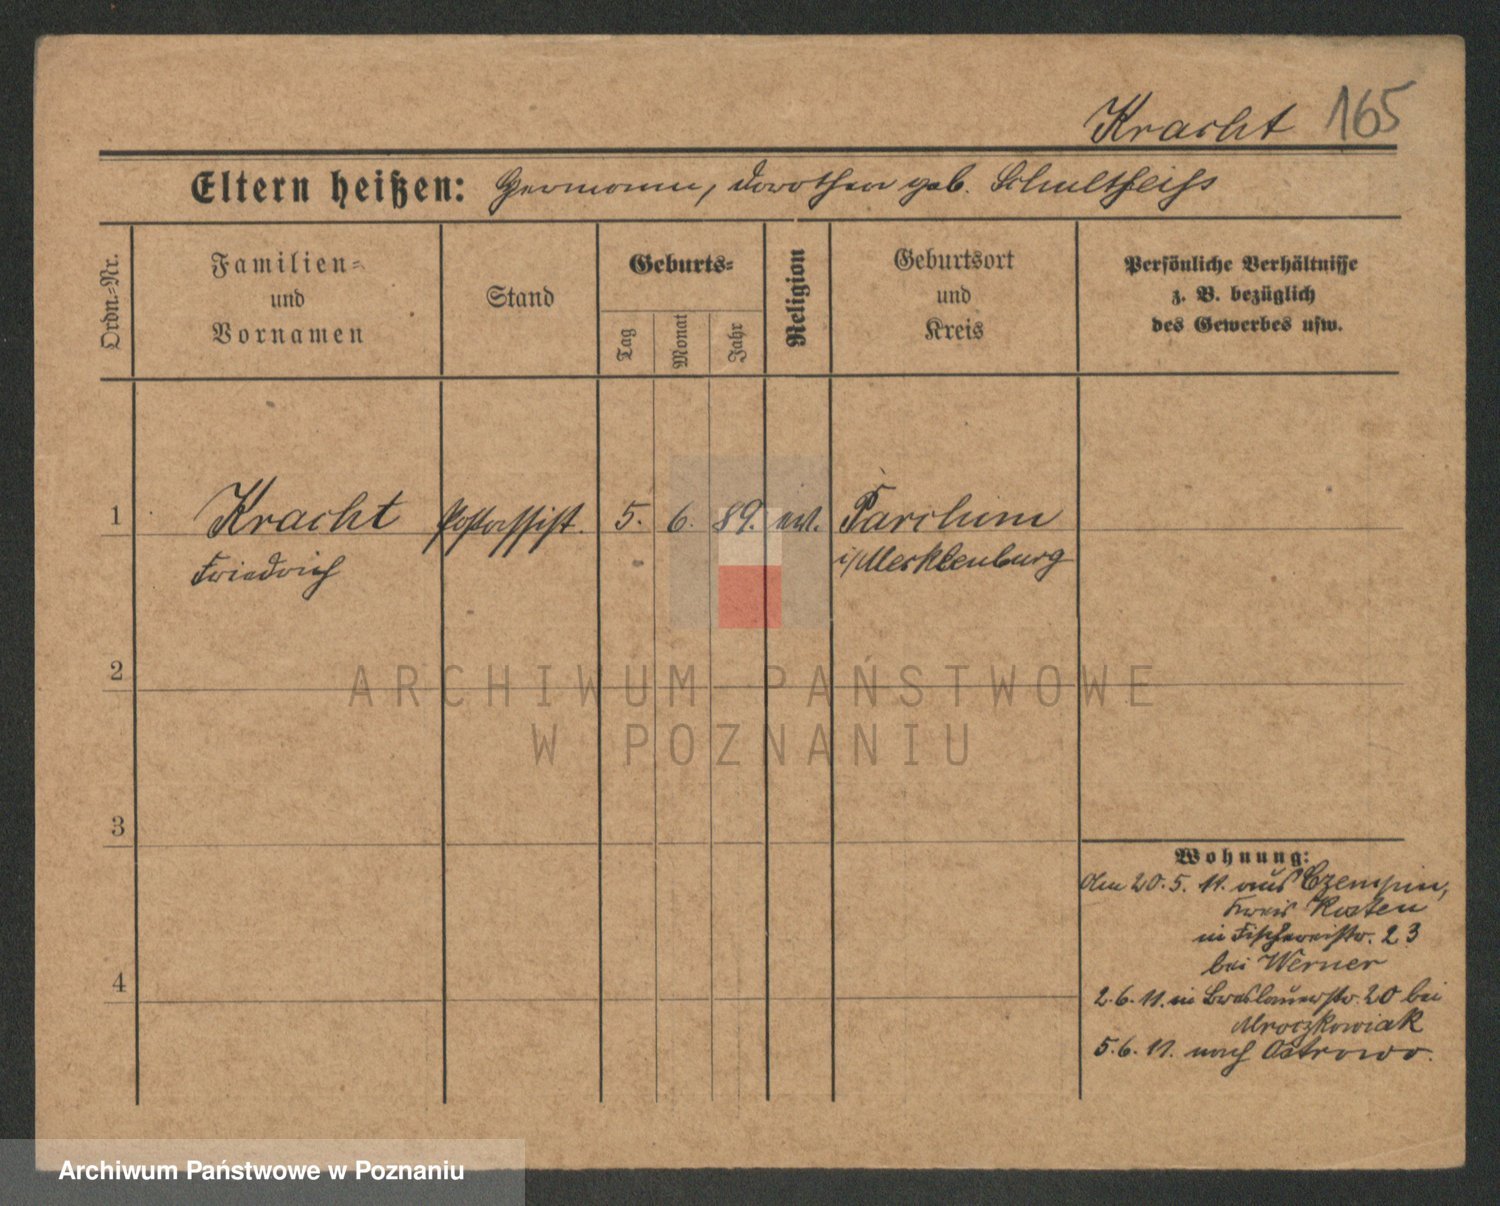 Kracht 165
Eltern heißen: Hermann, Dorothea geb. Schultheiß
Ordn.-Nr.
Familien-
und
Vornamen
Stand
Geburts-
Tag
Monat
Jahr
Religion
Geburtsort
und
Kreis
Persönliche Verhältnisse
z. B. bezüglich
des Gewerbes usw.
1 Kracht Postassist. 5. 6. 89. ev. Parchim
Friedrich i/Mecklenburg
2
ARCHIWUM PAŃSTWOWE
W POZNANIU
3
Wohnung:
Am 20. 5. 11. aus Czempin,
Kreis Kosten
in Fischereistr. 23
bei Werner
4
2. 6. 11. in Breslauerstr. 20 bei
Mroczkowiak
5. 6. 11. nach Ostrowo.
Archiwum Państwowe w Poznaniu